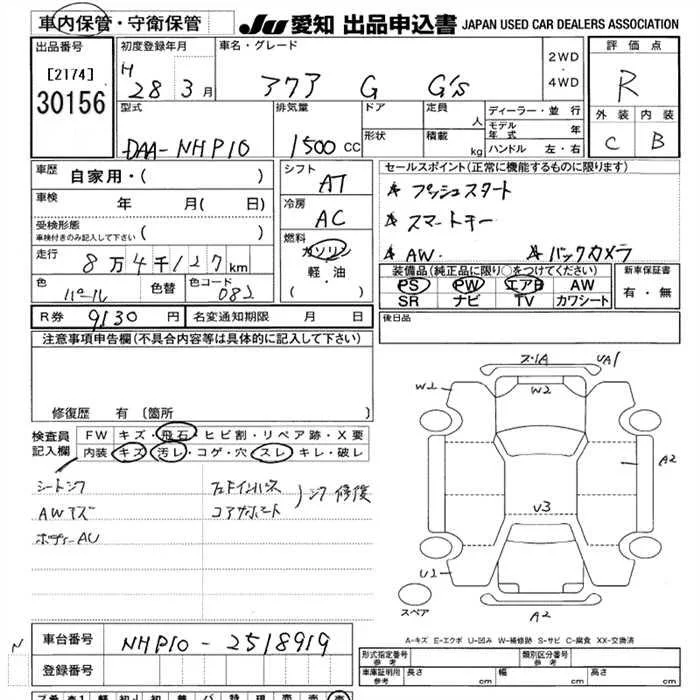 車内保管・守衛保管
JU 愛知 出品申込書 JAPAN USED CAR DEALERS ASSOCIATION
出品番号
[2174]
30156
初度登録年月
H 28 3月
車名・グレード
アクア G G's
2WD
・
4WD
評価点
R
外装 内装
C B
型式
DAA-NHP10
排気量
1500 CC
ドア
形状
定員
人
積載
kg
ディーラー・並行
モデル年式 年
ハンドル 左・右
車歴
自家用・( )
車検
年 月( 日)
受検形態
車検付きのみ記入して下さい ( )
走行
8万4千127km
色
パール
色替
色コード
082
シフト
AT
冷房
AC
燃料
ガソリン
軽・油
( )
セールスポイント(正常に機能するものに限ります)
☆ プッシュスタート
☆ スマートキー
☆ AW. ☆ バックカメラ
装備品(純正品に限り○をつけてください)
PS PW エアB AW
SR ナビ TV カワシート
新車保証書
有・無
R券 9130 円 名変通知期限 月 日
後日品
注意事項申告欄(不具合内容等は具体的に記入して下さい)
修復歴 有〔箇所 〕
検査員
記入欄
FW キズ・飛石・ヒビ割・リペア跡・X要
内装 キズ・汚レ・コゲ・穴・スレ・キレ・破レ
AWキズ
ボディーAU
コアサポート
修復
ス・1A
UA1
W2
W2
A2
U3
U2
A2
スペア
A-キズ E-エクボ U-凹み W-補修跡 S-サビ C-腐食 XX-交換済
N
車台番号
NHP10-2518919
登録番号
形式指定番号
参考
類別区分番号
参考
車庫証明用
参考
長さ cm 幅 cm 高さ cm